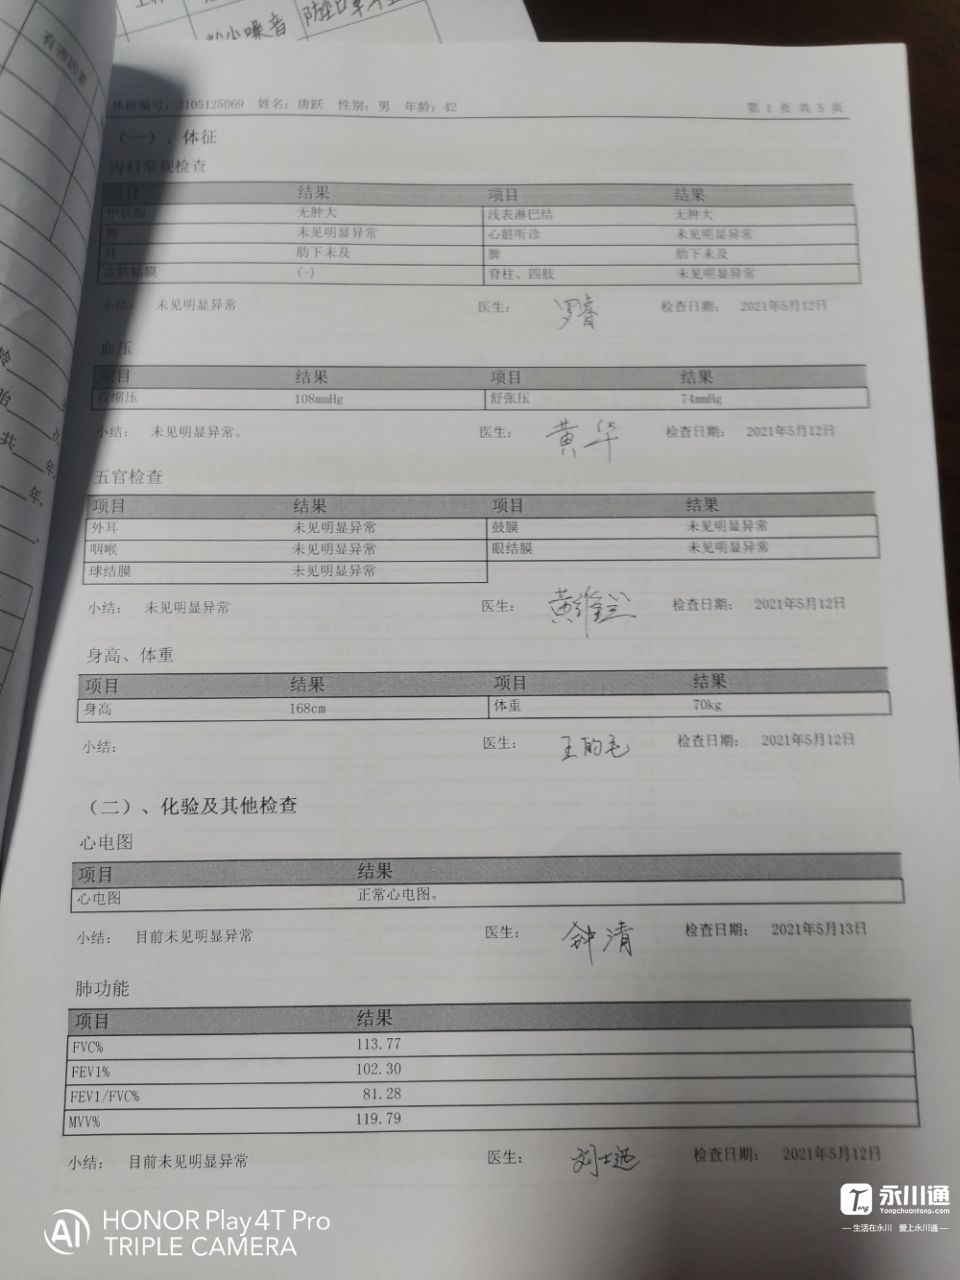 有害因素
小噪音 防尘口罩
体检编号: 2105125069 姓名: 唐跃 性别: 男 年龄: 42 第 1 页 共 5 页
(一)、体征
内科常规检查
项目 结果 项目 结果
甲状腺 无肿大 浅表淋巴结 无肿大
肺 未见明显异常 心脏听诊 未见明显异常
肝 肋下未及 脾 肋下未及
皮肤粘膜 (-) 脊柱、四肢 未见明显异常
小结: 未见明显异常 医生: 罗睿 检查日期: 2021年5月12日
血压
项目 结果 项目 结果
收缩压 108mmHg 舒张压 74mmHg
小结: 未见明显异常。 医生: 黄华 检查日期: 2021年5月12日
五官检查
项目 结果 项目 结果
外耳 未见明显异常 鼓膜 未见明显异常
咽喉 未见明显异常 眼结膜 未见明显异常
球结膜 未见明显异常
小结: 未见明显异常 医生: 检查日期: 2021年5月12日
身高、体重
项目 结果 项目 结果
身高 168cm 体重 70kg
小结: 医生: 检查日期: 2021年5月12日
(二)、化验及其他检查
心电图
项目 结果
心电图 正常心电图。
小结: 目前未见明显异常 医生: 钟清 检查日期: 2021年5月13日
肺功能
项目 结果
FVC% 113.77
FEV1% 102.30
FEV1/FVC% 81.28
MVV% 119.79
小结: 目前未见明显异常 医生: 检查日期: 2021年5月12日
龄
胎 次
共 年
年。
HONOR Play4T Pro
TRIPLE CAMERA
永川通
Yongchuantong.com
生活在永川 爱上永川通